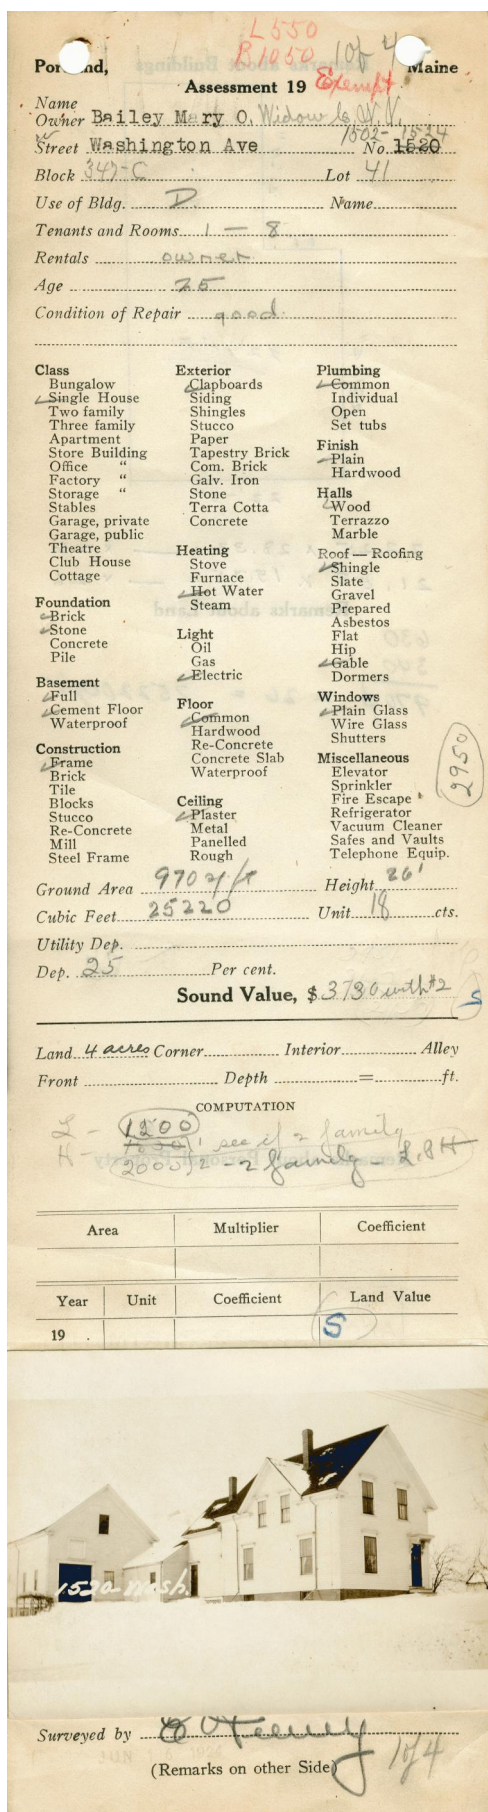 L 550
B 1050 1 of 4
Portland, Maine
Assessment 19 Exempt
Name
Owner Bailey Mary O. Widow
1502-1524
Street Washington Ave No. 1520
Block 347-C Lot 41
Use of Bldg. D Name
Tenants and Rooms 1 — 8
Rentals owner
Age 25
Condition of Repair good
Class
Bungalow
Single House
Two family
Three family
Apartment
Store Building
Office "
Factory "
Storage "
Stables
Garage, private
Garage, public
Theatre
Club House
Cottage
Foundation
Brick
Stone
Concrete
Pile
Basement
Full
Cement Floor
Waterproof
Construction
Frame
Brick
Tile
Blocks
Stucco
Re-Concrete
Mill
Steel Frame
Exterior
Clapboards
Siding
Shingles
Stucco
Paper
Tapestry Brick
Com. Brick
Galv. Iron
Stone
Terra Cotta
Concrete
Heating
Stove
Furnace
Hot Water
Steam
Light
Oil
Gas
Electric
Floor
Common
Hardwood
Re-Concrete
Concrete Slab
Waterproof
Ceiling
Plaster
Metal
Panelled
Rough
Plumbing
Common
Individual
Open
Set tubs
Finish
Plain
Hardwood
Halls
Wood
Terrazzo
Marble
Roof — Roofing
Shingle
Slate
Gravel
Prepared
Asbestos
Flat
Hip
Gable
Dormers
Windows
Plain Glass
Wire Glass
Shutters
Miscellaneous
Elevator
Sprinkler
Fire Escape
Refrigerator
Vacuum Cleaner
Safes and Vaults
Telephone Equip.
2950
Ground Area 970 sq ft Height 26'
Cubic Feet 25220 Unit 18 cts.
Utility Dep.
Dep. 25 Per cent.
Sound Value, $ 3730 with #2
S
Land 4 acres Corner Interior Alley
Front Depth = ft.
COMPUTATION
1200
see if 2 family
2000 2 - 2 family
Area Multiplier Coefficient
Year Unit Coefficient Land Value
19 . S
1520 Wash.
Surveyed by
(Remarks on other Side) 1 of 4